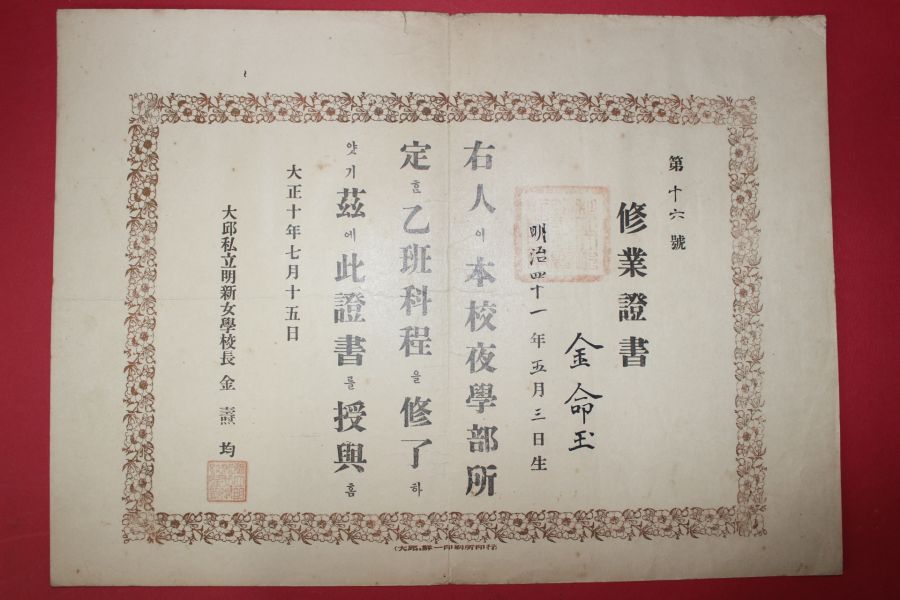 第十六號
修業證書
金命玉
明治四十一年五月三日生
右人이本校夜學部所
定ᄒᆞᆫ乙班科程을修了하
얏기茲에此證書를授與홈
大正十年七月十五日
大邱私立明新女學校長 金 壽 均
(大邱,鮮一印刷所印行)